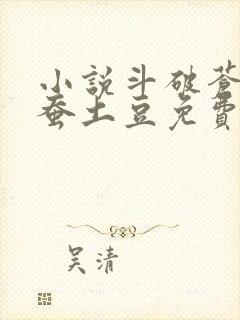 小説斗破蒼
蚕土豆免費
吴清